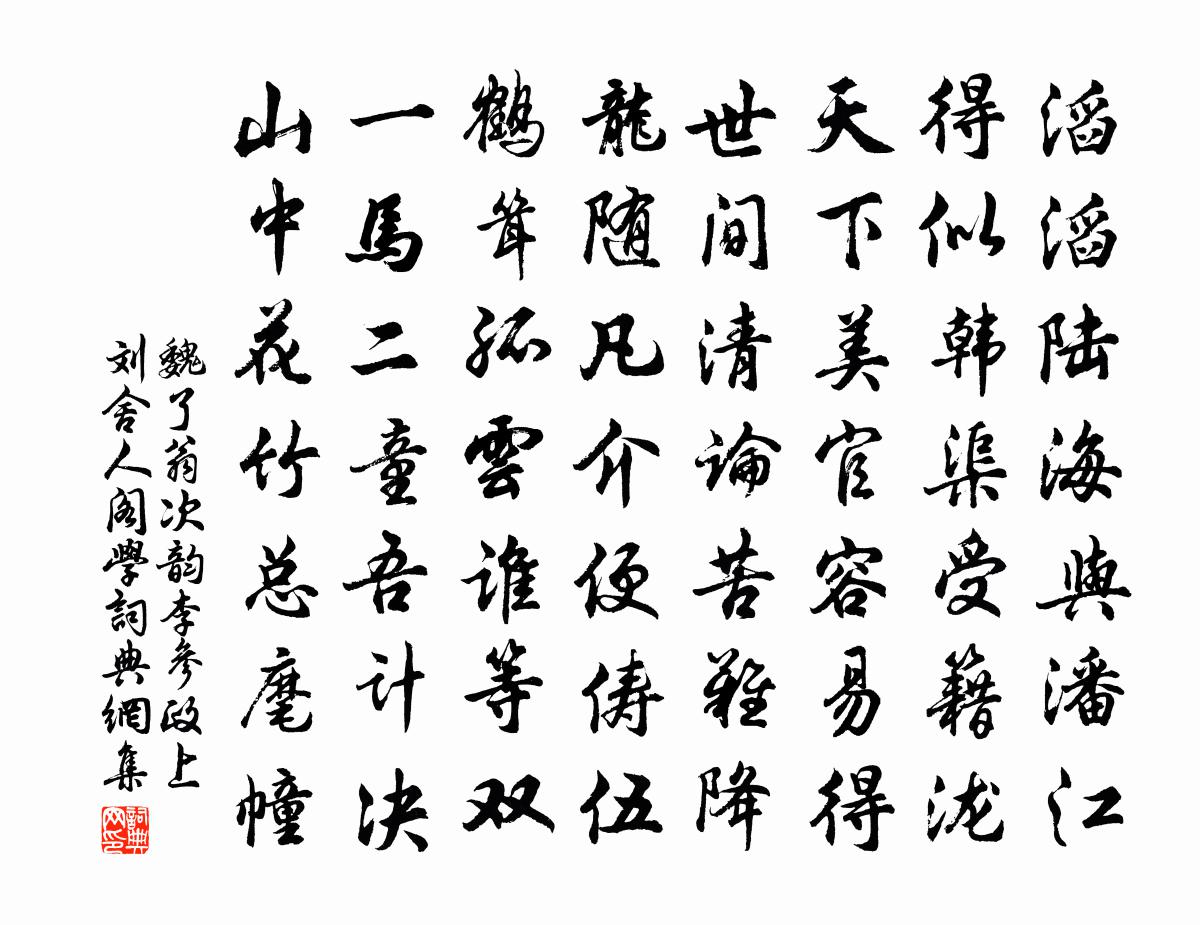 滔滔陆海與潘江
得似韩渠受籍泷
天下美官容易得
世间清論苦難降
龍随凡介便俦伍
鶴耸孤雲谁等双
一馬二童吾计决
山中花竹总麾幢
魏了翁次韵李参政上
刘舍人阁學詞典網集
詞典
网印